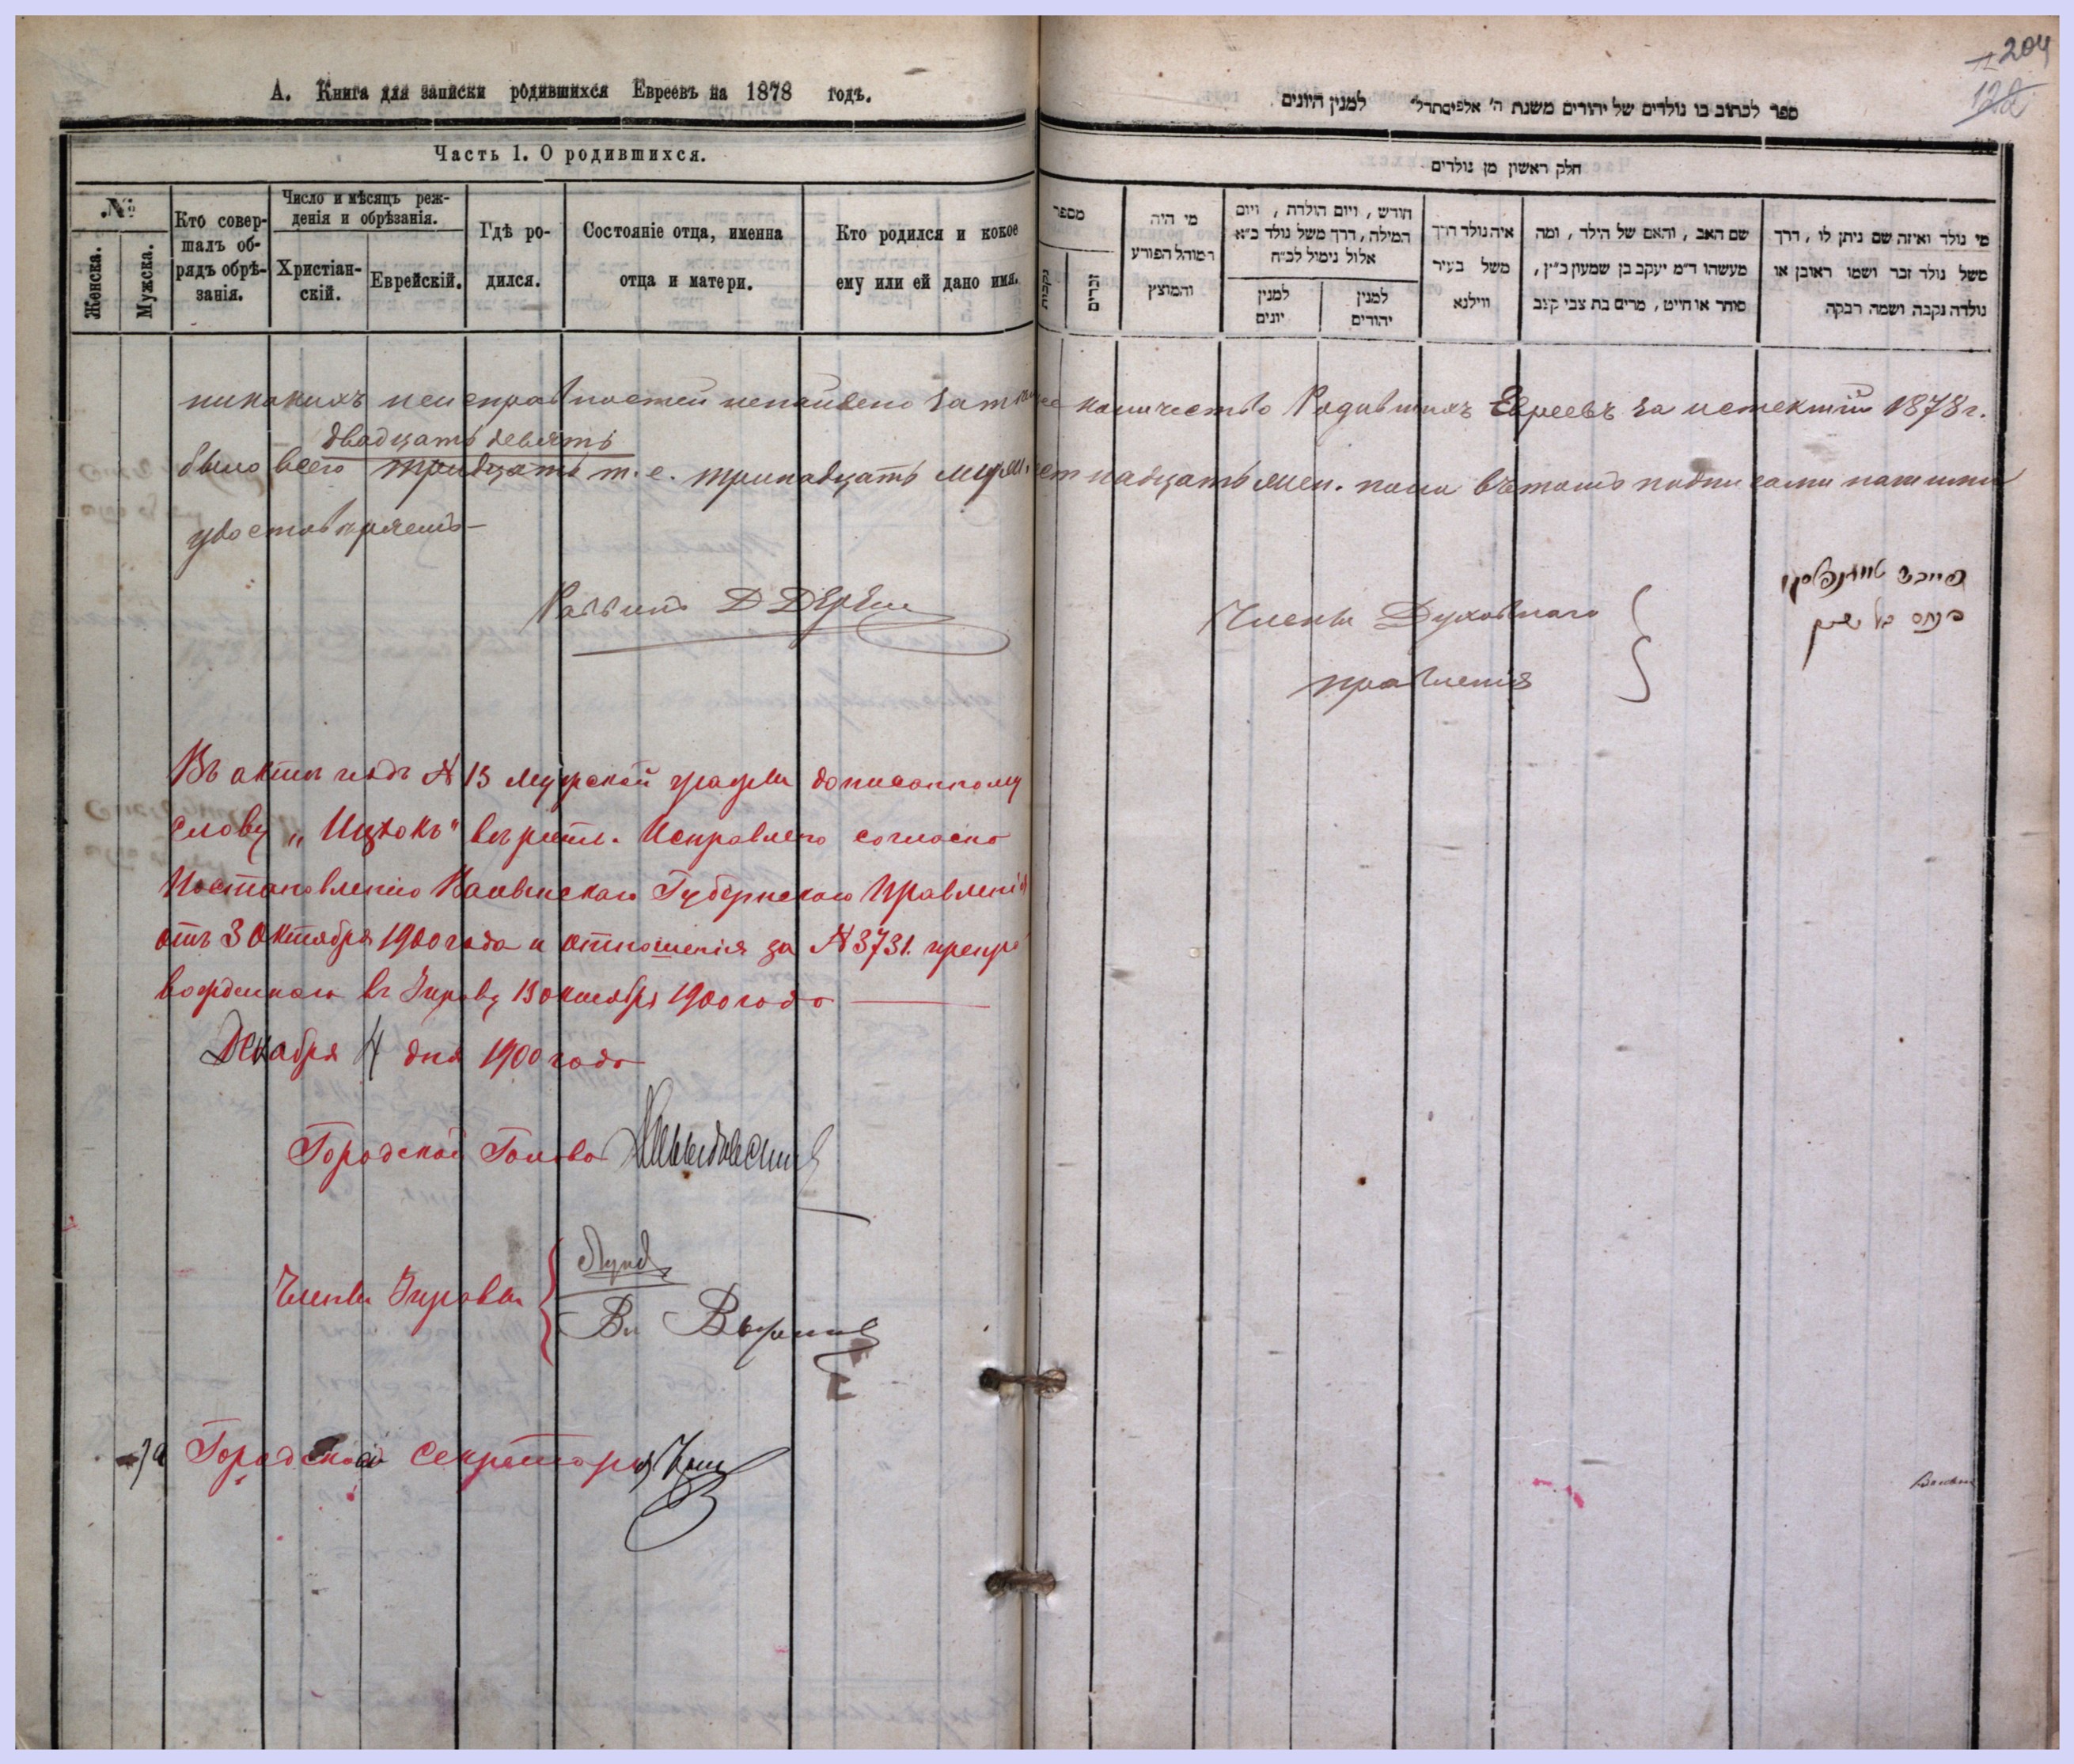 204
А. Книга для записки родившихся Евреевъ на 1878 годъ.
Часть 1. О родившихся.
№
Женска.
Мужска.
Кто совер-
шалъ об-
рядъ обрѣ-
занія.
Число и мѣсяцъ реж-
денія и обрѣзанія.
Христіан-
скій.
Еврейскій.
Гдѣ ро-
дился.
Состояніе отца, именна
отца и матери.
Кто родился и кокое
ему или ей дано имя.
ספר לכתוב בו נולדים של יהודים משנת ה' למנין היונים
חלק ראשון מן נולדים.
מספר
נקבות
זכרים
מי היה
המוהל הפורע
והמוצץ
חודש, ויום הולדת, ויום
המילה, דרך משל נולד כ״א
אלול נימול לכ״ח
למנין
יונים
למנין
יהודים
איה נולד דרך
משל בעיר
ווילנא
שם האב, והאם של הילד, ומה
מעשהו ד״מ יעקב בן שמעון כ״ץ,
סוחר או חייט, מרים בת צבי קצב
מי נולד ואיזה שם ניתן לו, דרך
משל נולד זכר ושמו ראובן או
נולדה נקבה ושמה רבקה
никакихъ неисправностей ненайдено а также количество Родившихъ Евреевъ за истекшій 1878 г.
двадцать девять
было всего тридцать т. е. тринадцать муж. шестнадцать жен. пола въ томъ подписами нашими
удостовѣряемъ
Раввинъ
Члены Духовнаго
правленія
Въ актѣ подъ N 13 мужской графы дописанному
слову „Ицхокъ" вѣрить. Исправлено согласно
Постановленію Ковенскаго Губернскаго Правленія
отъ 3 Октября 1900 года и отношенія за N 3731. препро
вожденнаго въ Управу 13 октября 1900 года
Декабря 4 дня 1900 года
Городской Голова
Члены Управы
Городской Секретарь